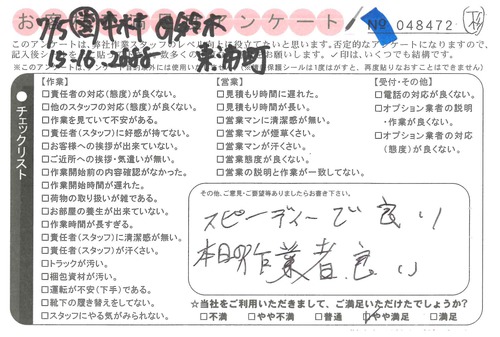 お客 アンケート No 048472
このアンケートは、弊社作業スタッフのレベル向上に役立てたいと思います。否定的なアンケートになりますので、
記入後シー をお願いします。✓印は、いくつでも結構です。
チェックリスト
【作業】
□責任者の対応(態度)が良くない。
□他のスタッフの対応(態度)が良くない。
□作業を見ていて不安がある。
□責任者(スタッフ)に好感が持てない。
□お客様への挨拶が出来ていない。
□ご近所への挨拶・気遣いが無い。
□作業開始前の内容確認がなかった。
□作業開始時間が遅れた。
□荷物の取り扱いが雑である。
□お部屋の養生が出来ていない。
□作業時間が長すぎる。
□責任者(スタッフ)に清潔感が無い。
□責任者(スタッフ)が汗くさい。
□トラックが汚い。
□梱包資材が汚い。
□運転が不安(下手)である。
□靴下の履き替えをしてない。
□スタッフにやる気がみられない。
【営業】
□見積もり時間に遅れた。
□見積もり時間が長い。
□営業マンに清潔感が無い。
□営業マンが煙草くさい。
□営業マンが汗くさい。
□営業態度が良くない。
□営業の説明と作業が一致してない。
【受付・その他】
□電話の対応が良くない。
□オプション業者の説明
・作業が良くない。
□オプション業者の対応
(態度)が良くない。
その他、ご意見・ご要望等ありましたらお書き下さい。
スピーディーで良い
本日の作業者良い
☆当社をご利用いただきまして、ご満足いただけたでしょうか?
□不満 □やや不満 □普通 □やや満足 □満足